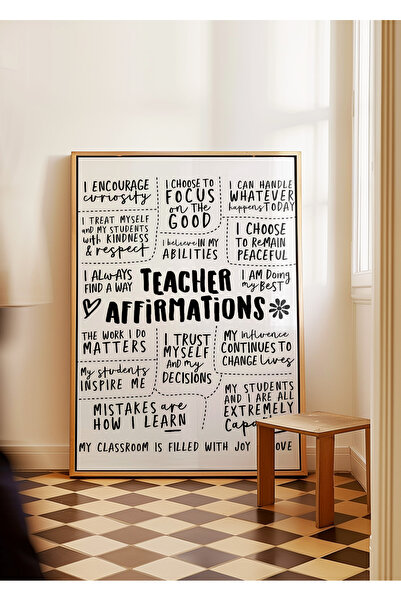 I ENCOURAGE
curiosity
I CHOOSE TO
FOCUS
on THE
GOOD
I CAN HANDLE
WHATEVER
happens TODAY
I TREAT MYSELF
and MY STUDENTS
with KINDNESS
& respect
I believe IN MY
ABILITIES
I CHOOSE
TO REMAIN
PEACEFUL
I ALWAYS
FIND A WAY
TEACHER
AFFIRMATIONS
I AM Doing
my BEST
THE WORK I DO
MATTERS
I TRUST
MYSELF
And my
DECISIONS
MY influence
CONTINUES TO
CHANGE lives
My students
INSPIRE ME
MISTAKES are
HOW I LEARN
MY STUDENTS
AND I ARE ALL
EXTREMELY
MY CLASSROOM IS FILLED WITH JOY